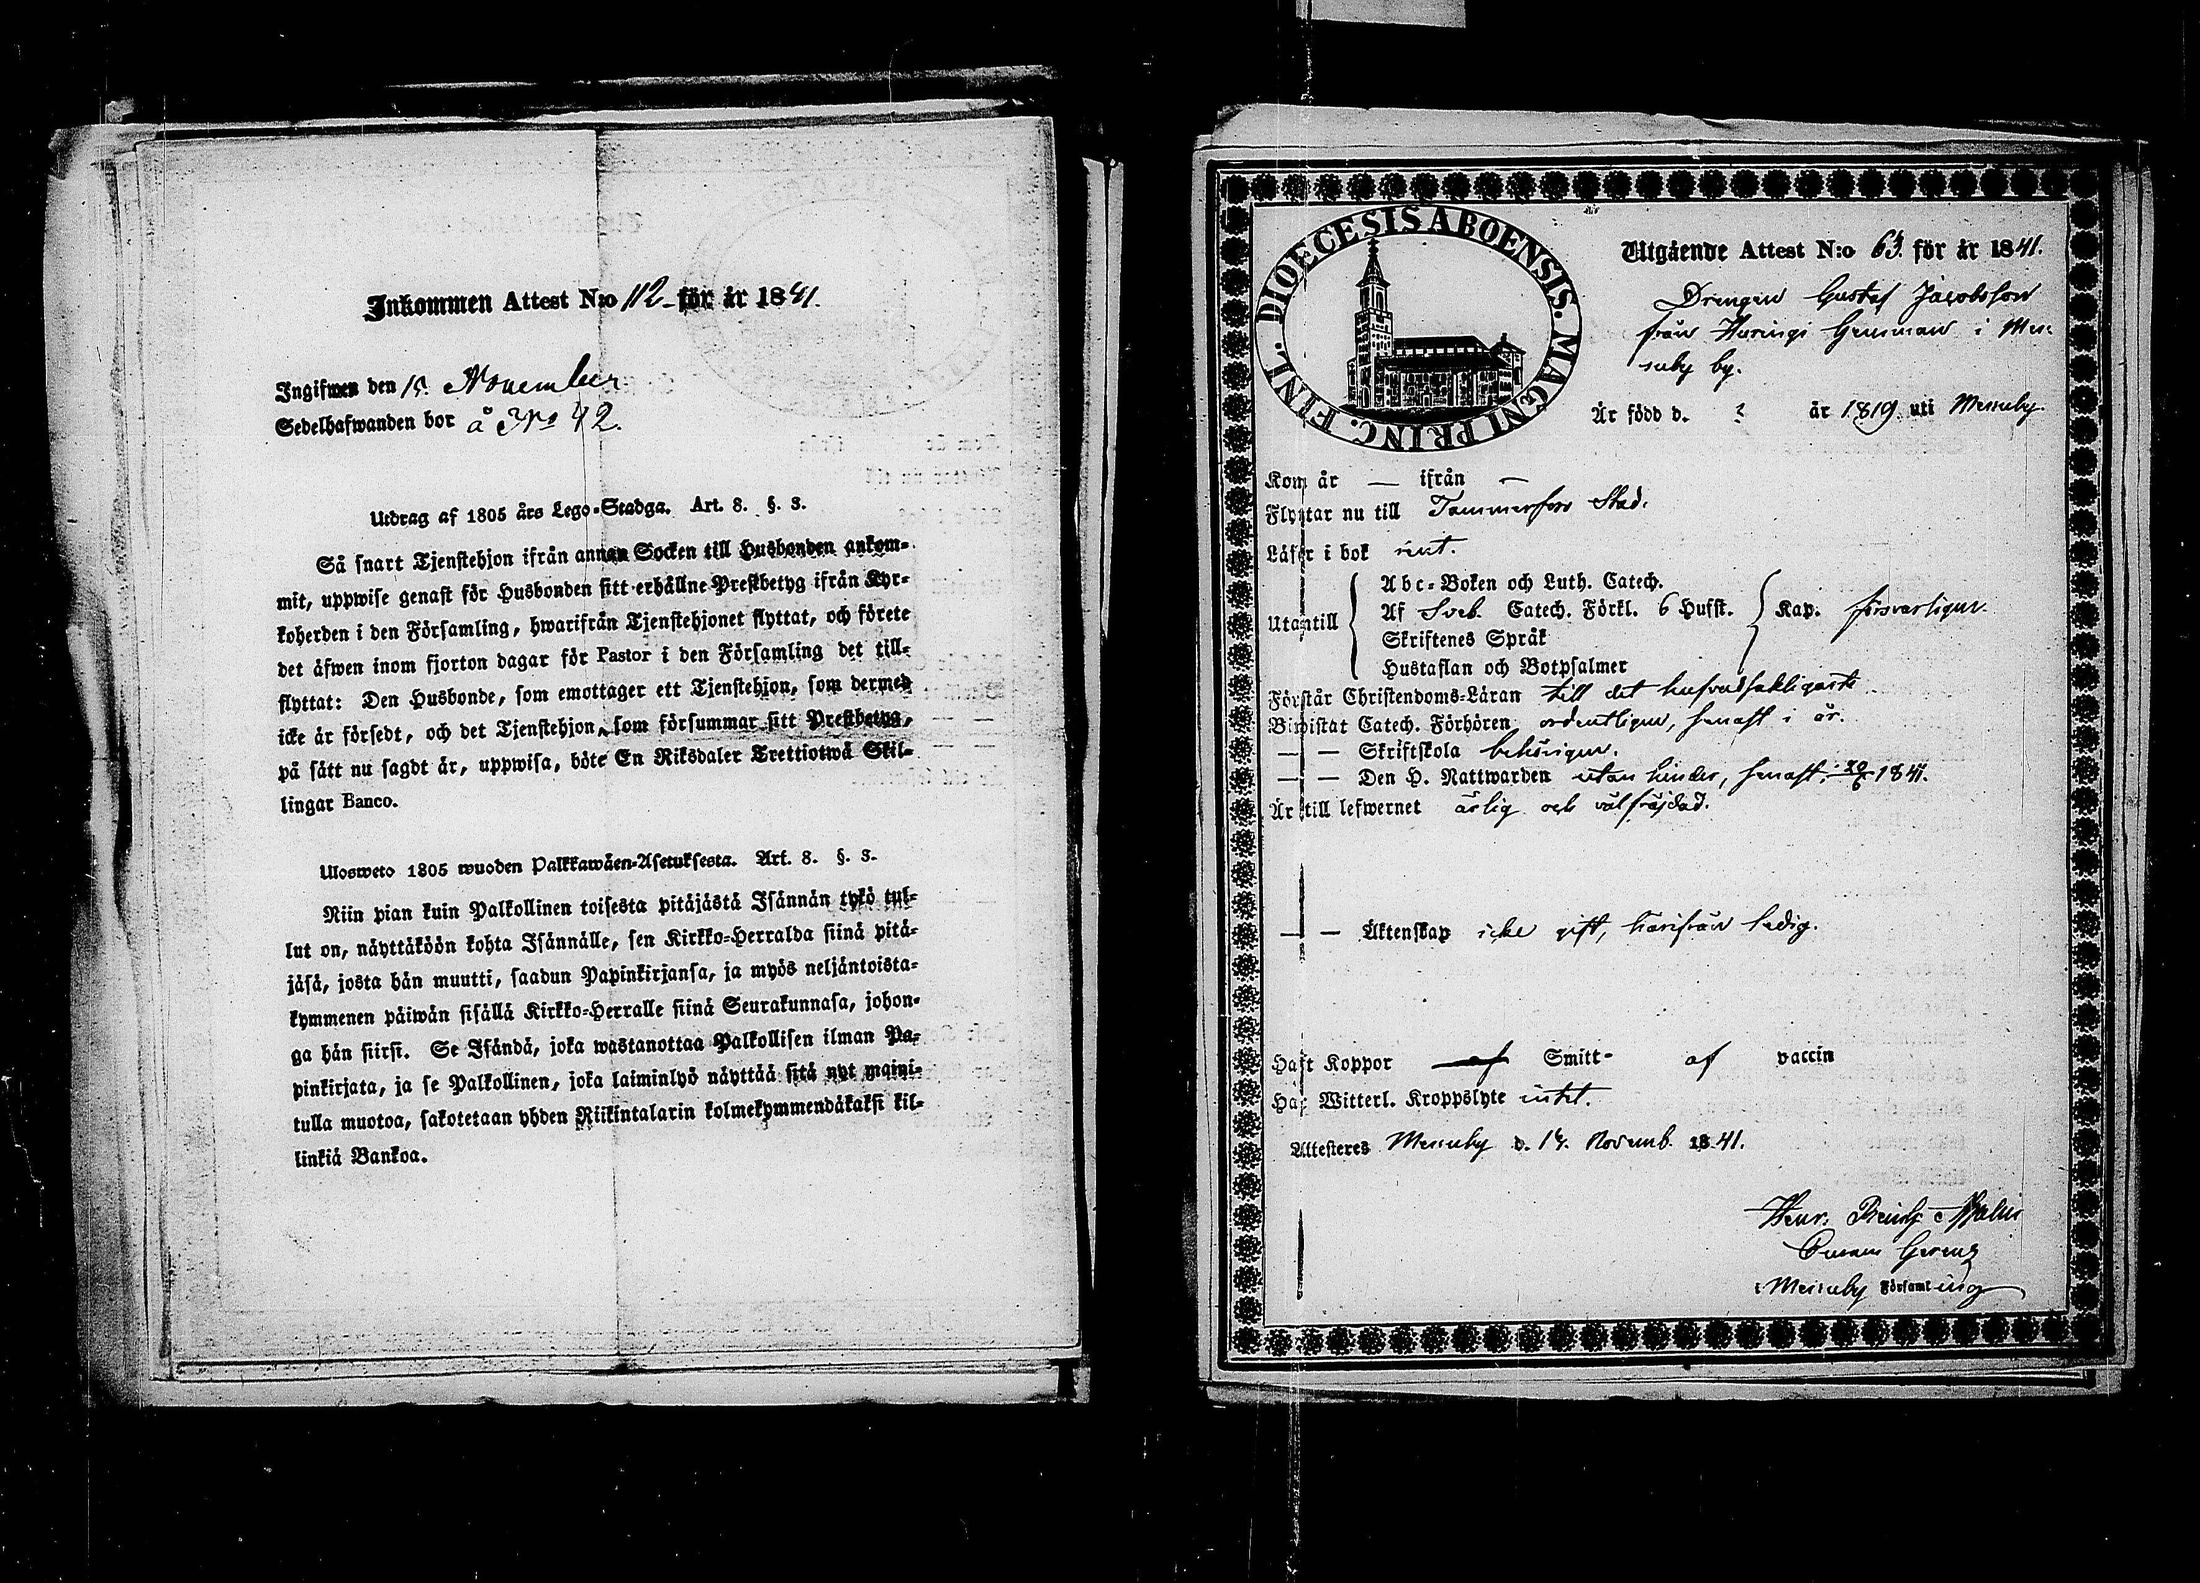 Inkommen Attest N:o 112 för år 1841.
Ingifwen den 15. November
Sedelhafwanden bor å No 42.
Utdrag af 1805 års Lego-Stadga. Art. 8. §. 3.
Så snart Tjenstehjon ifrån annan Socken till Husbonden ankom-
mit, uppwise genast för Husbonden sitt erhållne Prestbetyg ifrån Kyr-
koherden i den Församling, hwarifrån Tjenstehjonet flyttat, och förete
det äfwen inom fjorton dagar för Pastor i den Församling det till-
flyttat: Den Husbonde, som emottager ett Tjenstehjon, som dermed
icke är försedt, och det Tjenstehjon, som försummar sitt Prestbetyg,
på sätt nu sagdt är, uppwisa, böte En Riksdaler Trettiotwå Skil-
lingar Banco.
Ulosweto 1805 wuoden Palkkawäen-Asetuksesta. Art. 8. §. 3.
Niin pian kuin Palkollinen toisesta pitäjästä Isännän tykö tul-
lut on, näyttäköön kohta Isännälle, sen Kirkko-Herralda siinä pitä-
jäsä, josta hän muutti, saadun Papinkirjansa, ja myös neljäntoista-
kymmenen päiwän sisällä Kirkko-Herralle siinä Seurakunnasa, johon-
ga hän siirsi. Se Isändä, joka wastanottaa Palkollisen ilman Pa-
pinkirjata, ja se Palkollinen, joka laiminlyö näyttää sitä nyt maini-
tulla muotoa, sakotetaan yhden Riikintalarin kolmekymmendäkaksi kil-
linkiä Bankoa.
DIOECESIS ABOENSIS. MAGNI PRINC. FINL.
Utgående Attest N:o 63. för år 1841.
Drengen Gustaf Jacobsson
från i
by.
Är född d. ? år 1819. uti Messuby.
Kom år — ifrån —
Flyttar nu till Tammerfors Stad.
Läser i bok rent.
Utantill
Abc-Boken och Luth. Catech.
Af Sveb. Catech. Förkl. 6 Hufst. Kap. försvarligen.
Skriftenes Språk
Hustaflan och Botpsalmer
Förstår Christendoms-Läran till det hufvudsakligaste
Biwistat Catech. Förhören ordentligen, senast i år.
— — Skriftskola behörigen.
— — Den H. Nattwarden utan hinder, senast 20/6 1841.
Är till lefwernet ärlig och välfräjdad.
— — Äktenskap icke gift, härifrån ledig.
Haft Koppor af Smitt- af vaccin
Har Witterl. Kroppslyte intet.
Attesteres Messuby d. 14. Novemb. 1841.
Henr.
i Messuby Församling